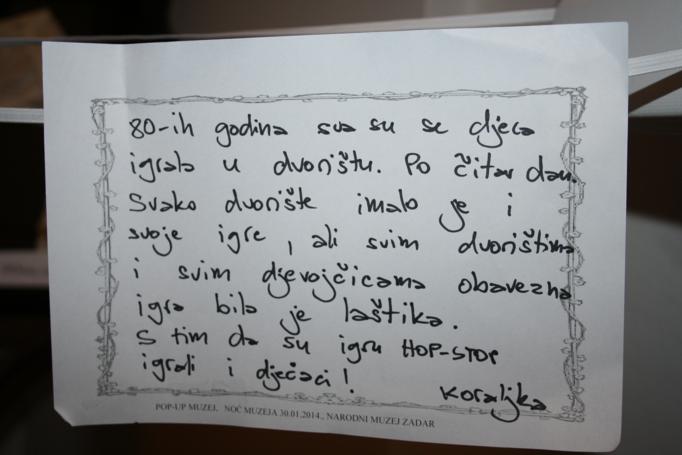 80-ih godina sva su se djeca
igrala u dvorištu. Po čitav dan.
Svako dvorište imalo je i
svoje igre, ali svim dvorištima
i svim djevojčicama obavezna
igra bila je laštika.
S tim da su igru HOP-STOP
igrali i dječaci!
Koraljka
POP-UP MUZEJ, NOĆ MUZEJA 30.01.2014., NARODNI MUZEJ ZADAR